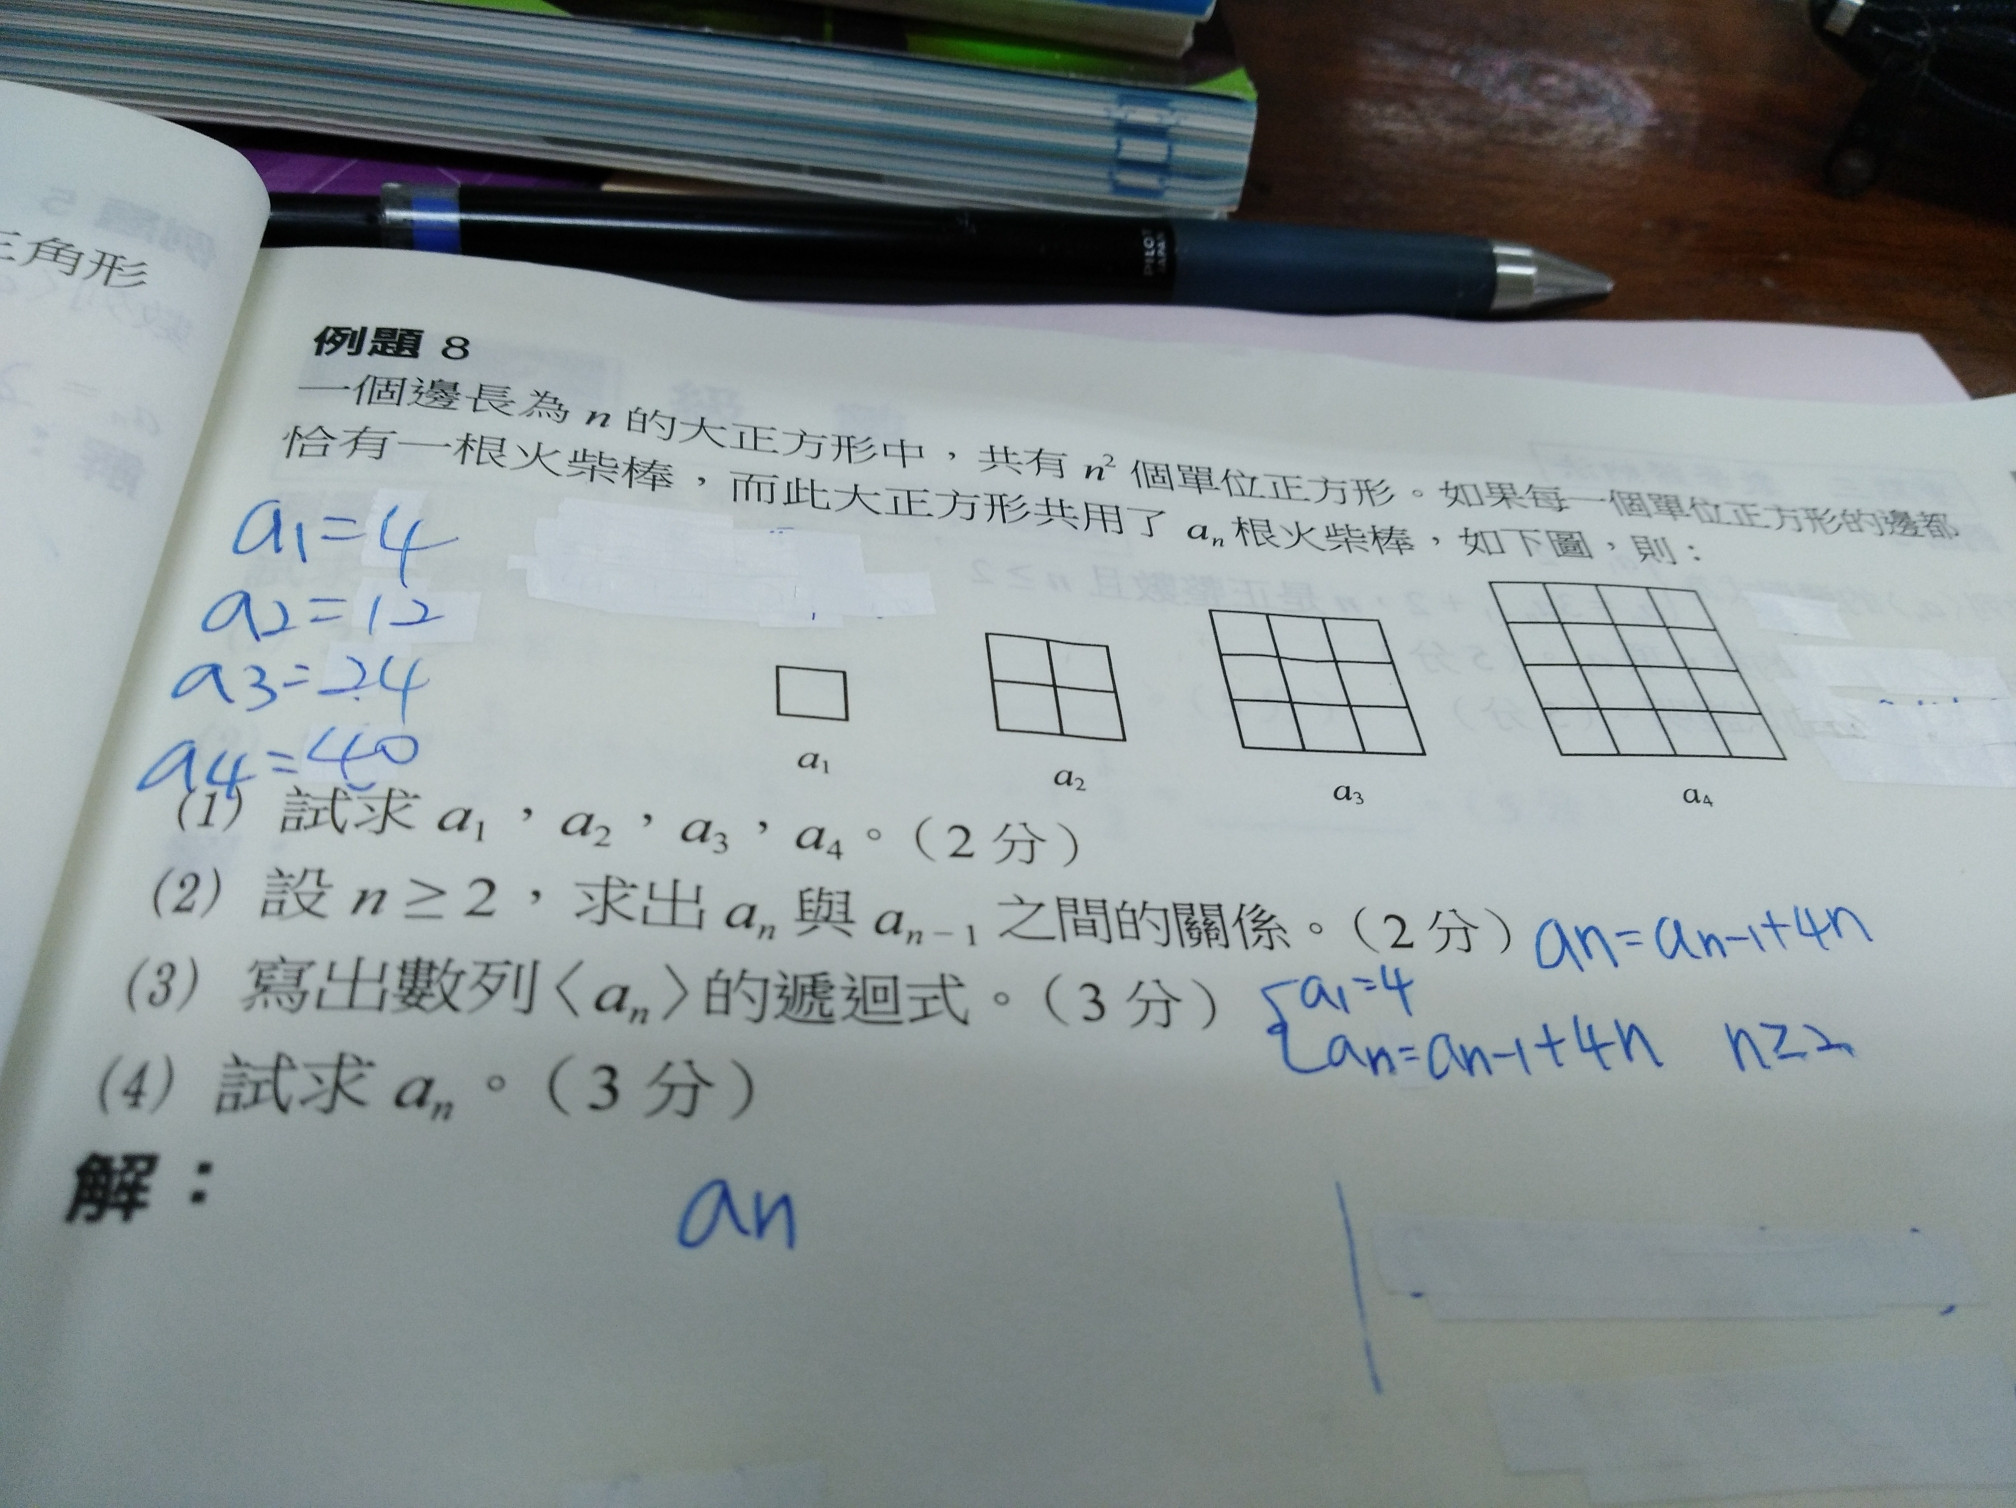 PILOT
JAPAN
三角形
例題 8
一個邊長為 n 的大正方形中，共有 n² 個單位正方形。如果每一個單位正方形的邊都
恰有一根火柴棒，而此大正方形共用了 aₙ 根火柴棒，如下圖，則：
a1=4
a2=12
a3=24
a4=40
a₁
a₂
a₃
a₄
(1) 試求 a₁，a₂，a₃，a₄。（2 分）
(2) 設 n≥2，求出 aₙ 與 aₙ₋₁ 之間的關係。（2 分） an=an-1+4n
(3) 寫出數列〈aₙ〉的遞迴式。（3 分）
a1=4
an=an-1+4n n≥2
(4) 試求 aₙ。（3 分）
解：
an